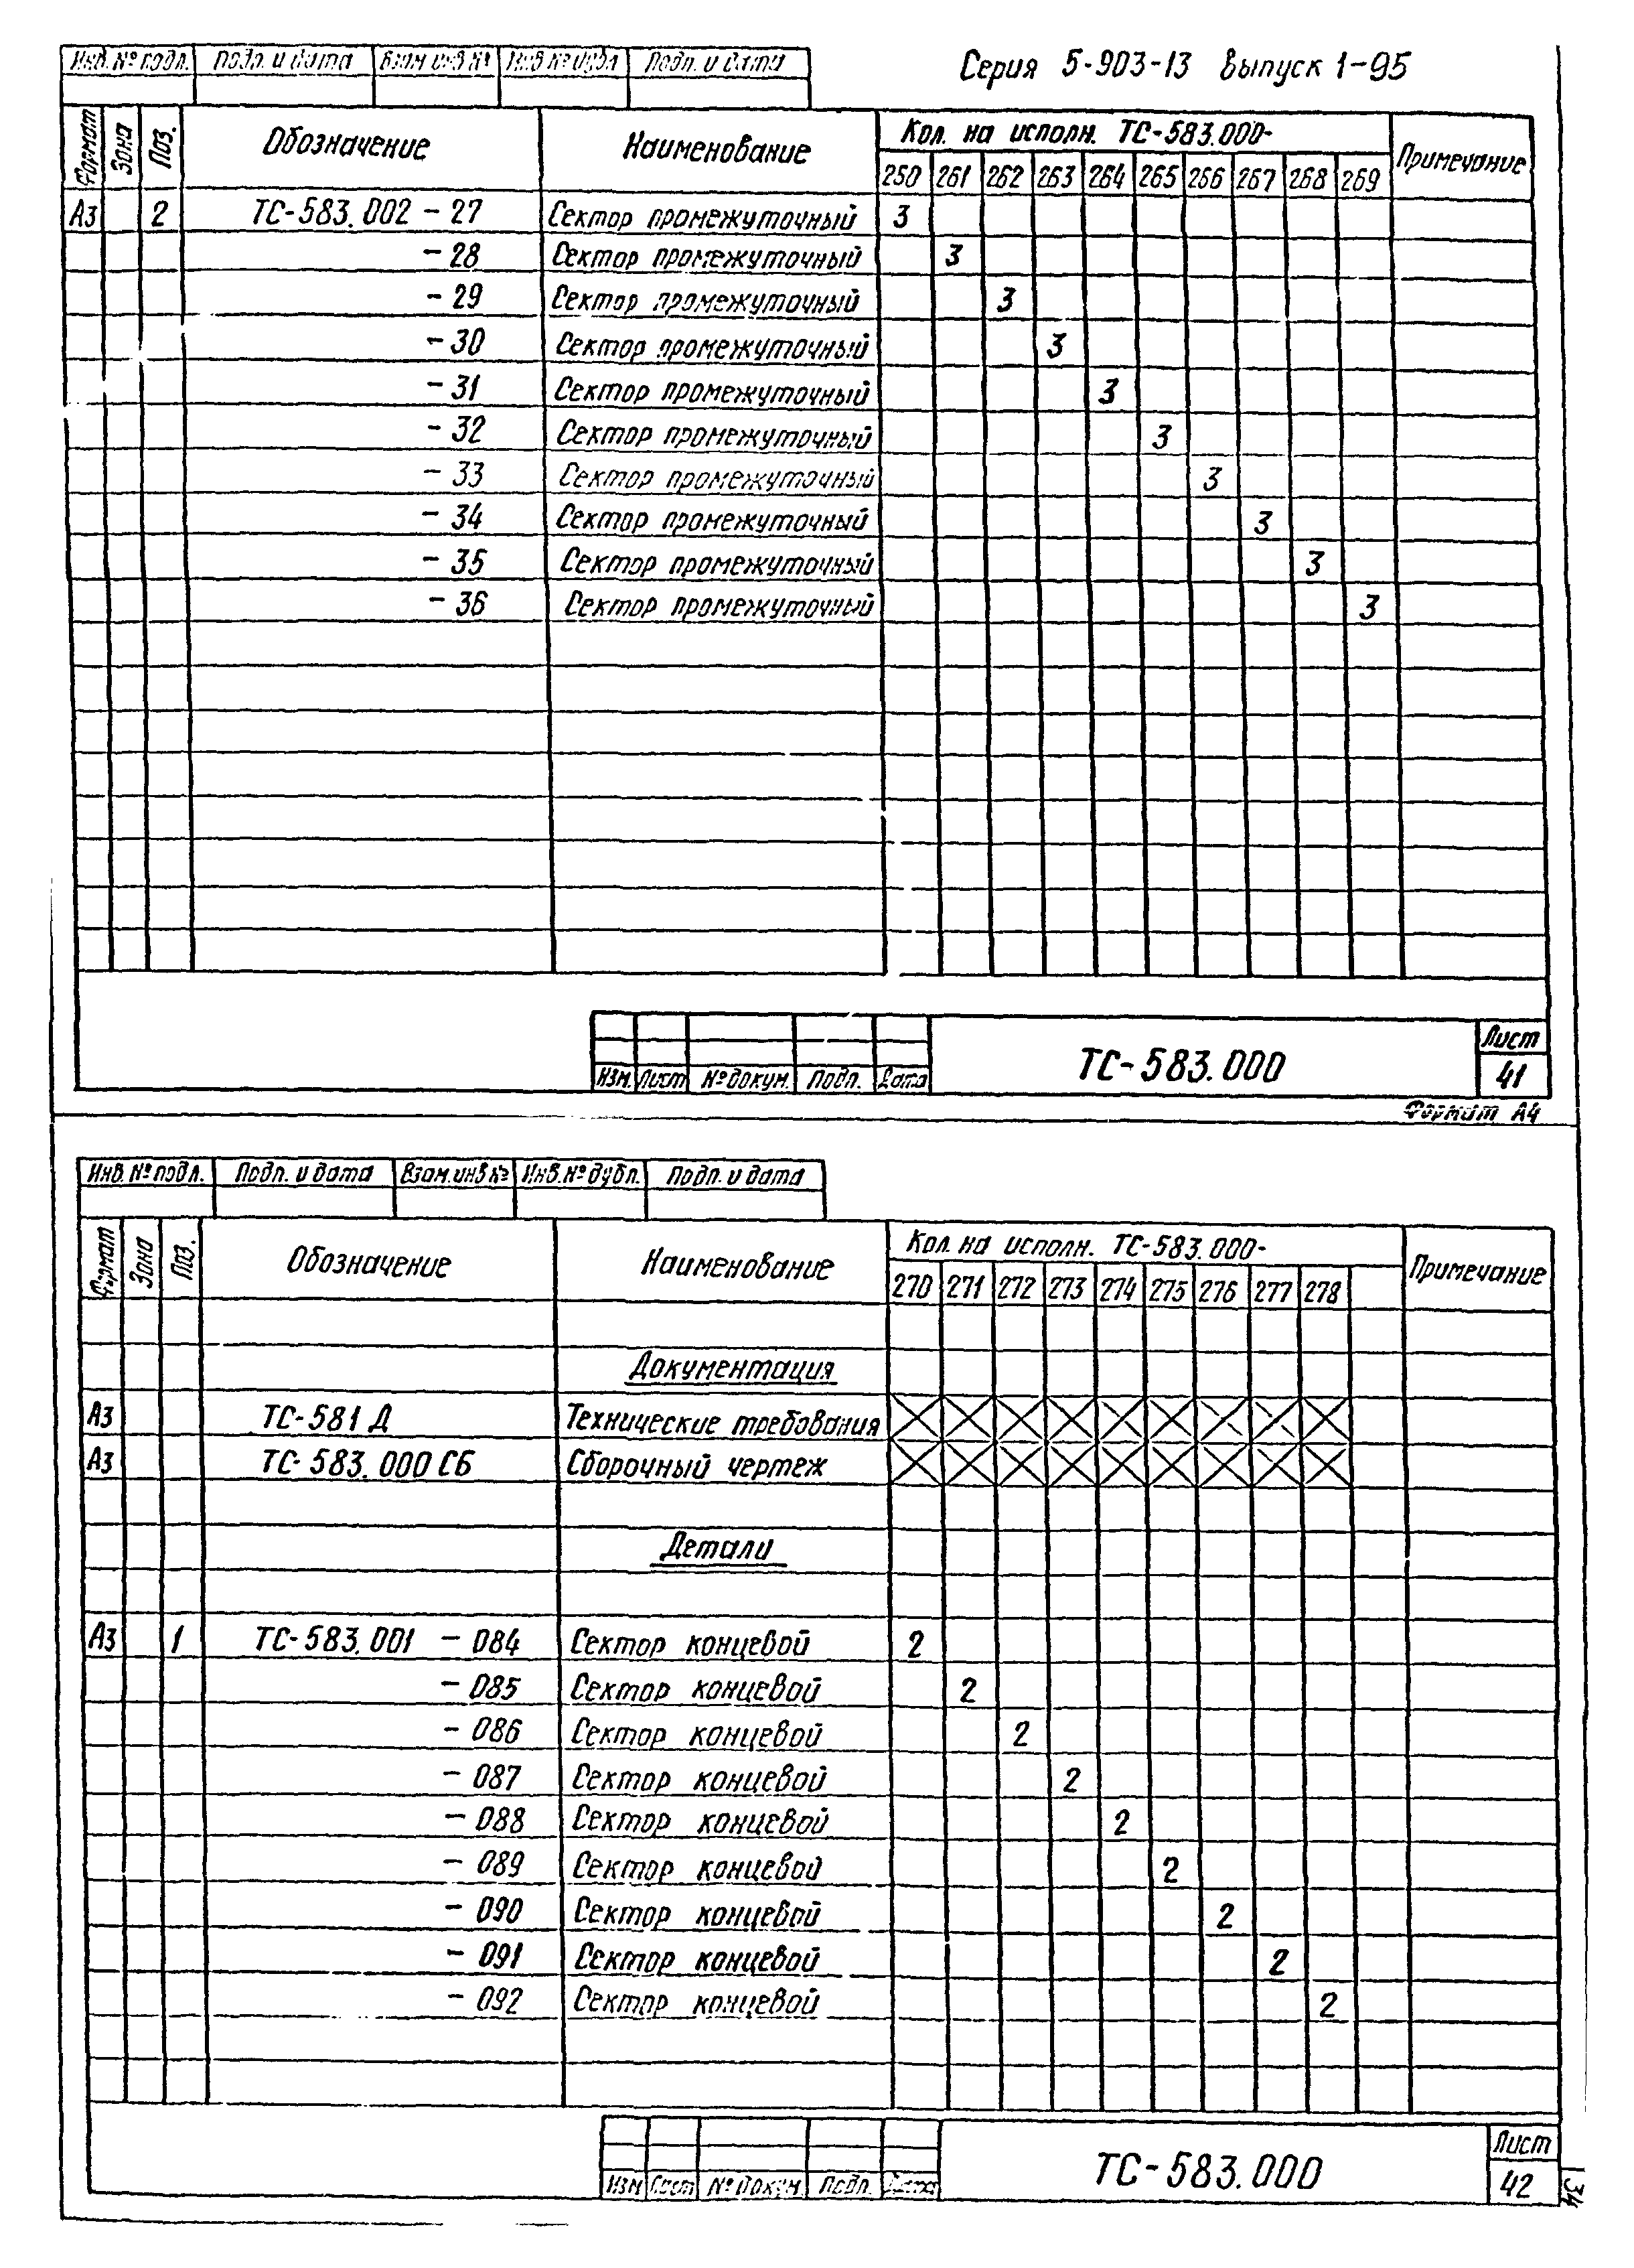 Инв. № подл. Подп. и дата Взам инв № Инв № дубл Подп. и дата
Серия 5-903-13 Выпуск 1-95
Формат Зона Поз. Обозначение Наименование Кол. на исполн. ТС-583.000- Примечание
250 261 262 263 264 265 266 267 268 269
А3 2 ТС-583.002 - 27 Сектор промежуточный 3
- 28 Сектор промежуточный 3
- 29 Сектор промежуточный 3
- 30 Сектор промежуточный 3
- 31 Сектор промежуточный 3
- 32 Сектор промежуточный 3
- 33 Сектор промежуточный 3
- 34 Сектор промежуточный 3
- 35 Сектор промежуточный 3
- 36 Сектор промежуточный 3
Изм. Лист № докум. Подп. Дата
ТС-583.000
Лист
41
Формат А4
Инв. № подл. Подп. и дата Взам. инв № Инв. № дубл. Подп. и дата
Формат Зона Поз. Обозначение Наименование Кол. на исполн. ТС-583.000- Примечание
270 271 272 273 274 275 276 277 278
Документация
А3 ТС-581 Д Технические требования
А3 ТС-583.000 СБ Сборочный чертеж
Детали
А3 1 ТС-583.001 - 084 Сектор концевой 2
- 085 Сектор концевой 2
- 086 Сектор концевой 2
- 087 Сектор концевой 2
- 088 Сектор концевой 2
- 089 Сектор концевой 2
- 090 Сектор концевой 2
- 091 Сектор концевой 2
- 092 Сектор концевой 2
Изм Лист № докум. Подп. Дата
ТС-583.000
Лист
42
134